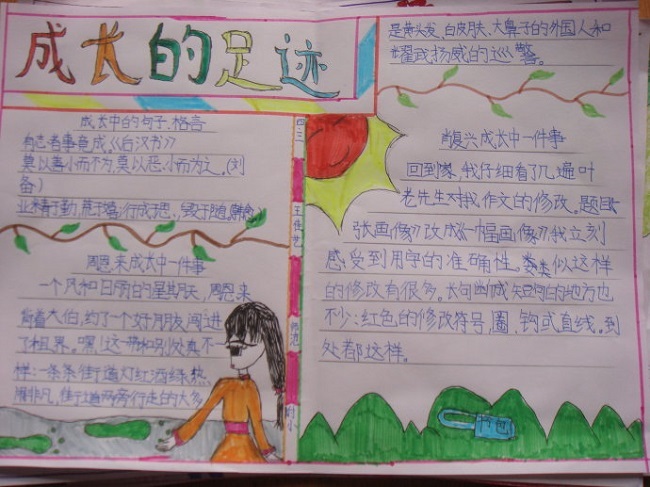 成长的足迹
成长中的句子、格言
有志者事竟成。《后汉书》
莫以善小而不为,莫以恶小而为之。(刘
备)
业精于勤,荒于嬉;行成于思,毁于随。(韩愈)
周恩来成长中一件事
一个风和日丽的星期天,周恩来
背着大伯,约了一个好朋友,闯进
了租界。嘿!这一带和别处真不一
样:一条条街道灯红酒绿,热
闹非凡,街道两旁行走的大多
四二
师范
附小
是黄头发、白皮肤、大鼻子的外国人和
耀武扬威的巡警。
肖复兴成长中一件事
回到家,我仔细看了几遍叶
老先生对我作文的修改。题目
张画像》改成《一幅画像》,我立刻
感受到用字的准确性。类似这样
的修改有很多。长句断成短句的地方也
不少;红色的修改符号,圈、钩或直线。到
处都这样。
书包